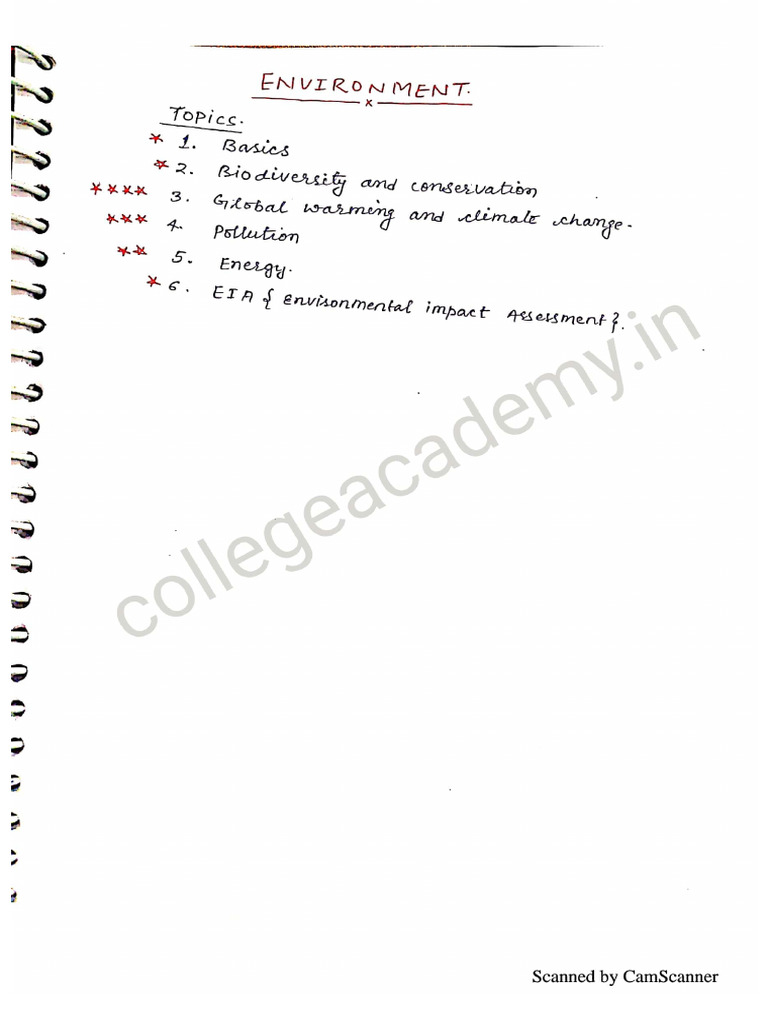 ENVIRONMENT.
x
Topics.
* 1. Basics
* 2. Biodiversity and conservation
**** 3. Global warming and climate change.
*** 4. Pollution
** 5. Energy.
* 6. EIA { Envisonmental impact Assessment }.
collegeacademy.in
Scanned by CamScanner